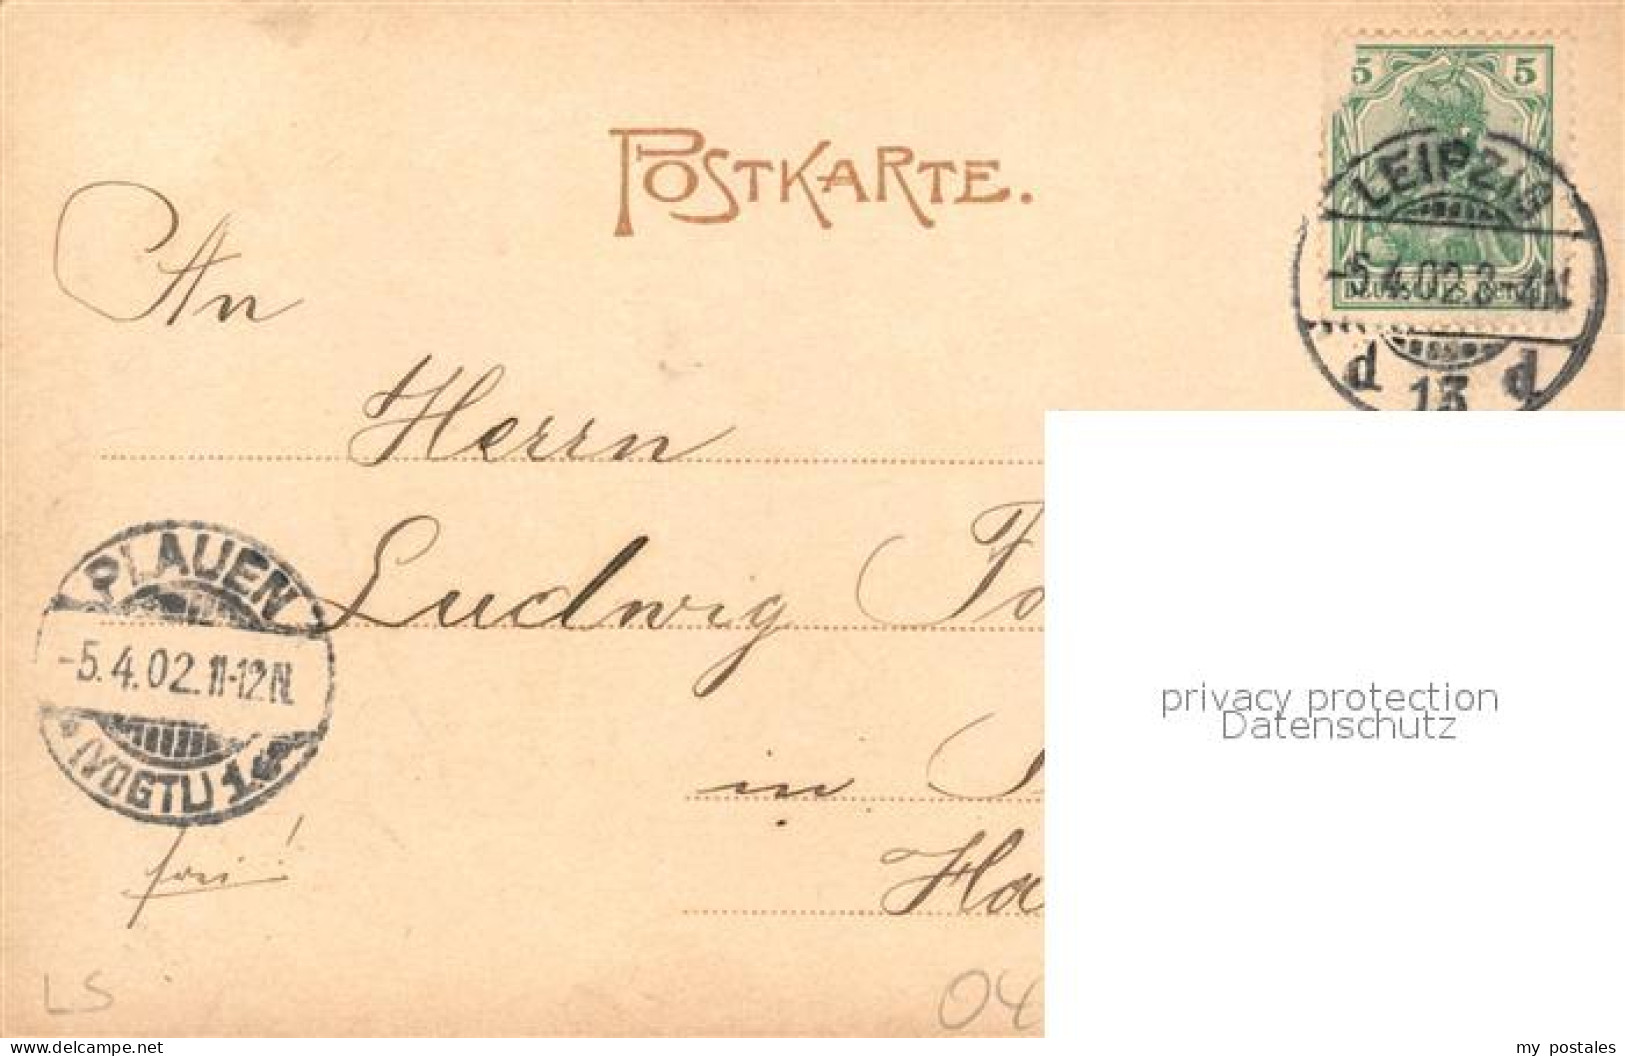 POSTKARTE.
5 5
LEIPZIG
-5.4.02.3-4N.
DEUTSCHES REICH
d 13 d
An
Herrn
Ludwig
PLAUEN
-5.4.02.11-12N.
(VOGTL) 1
in
frei!
LS
04
privacy protection
Datenschutz
www.delcampe.net
my_postales